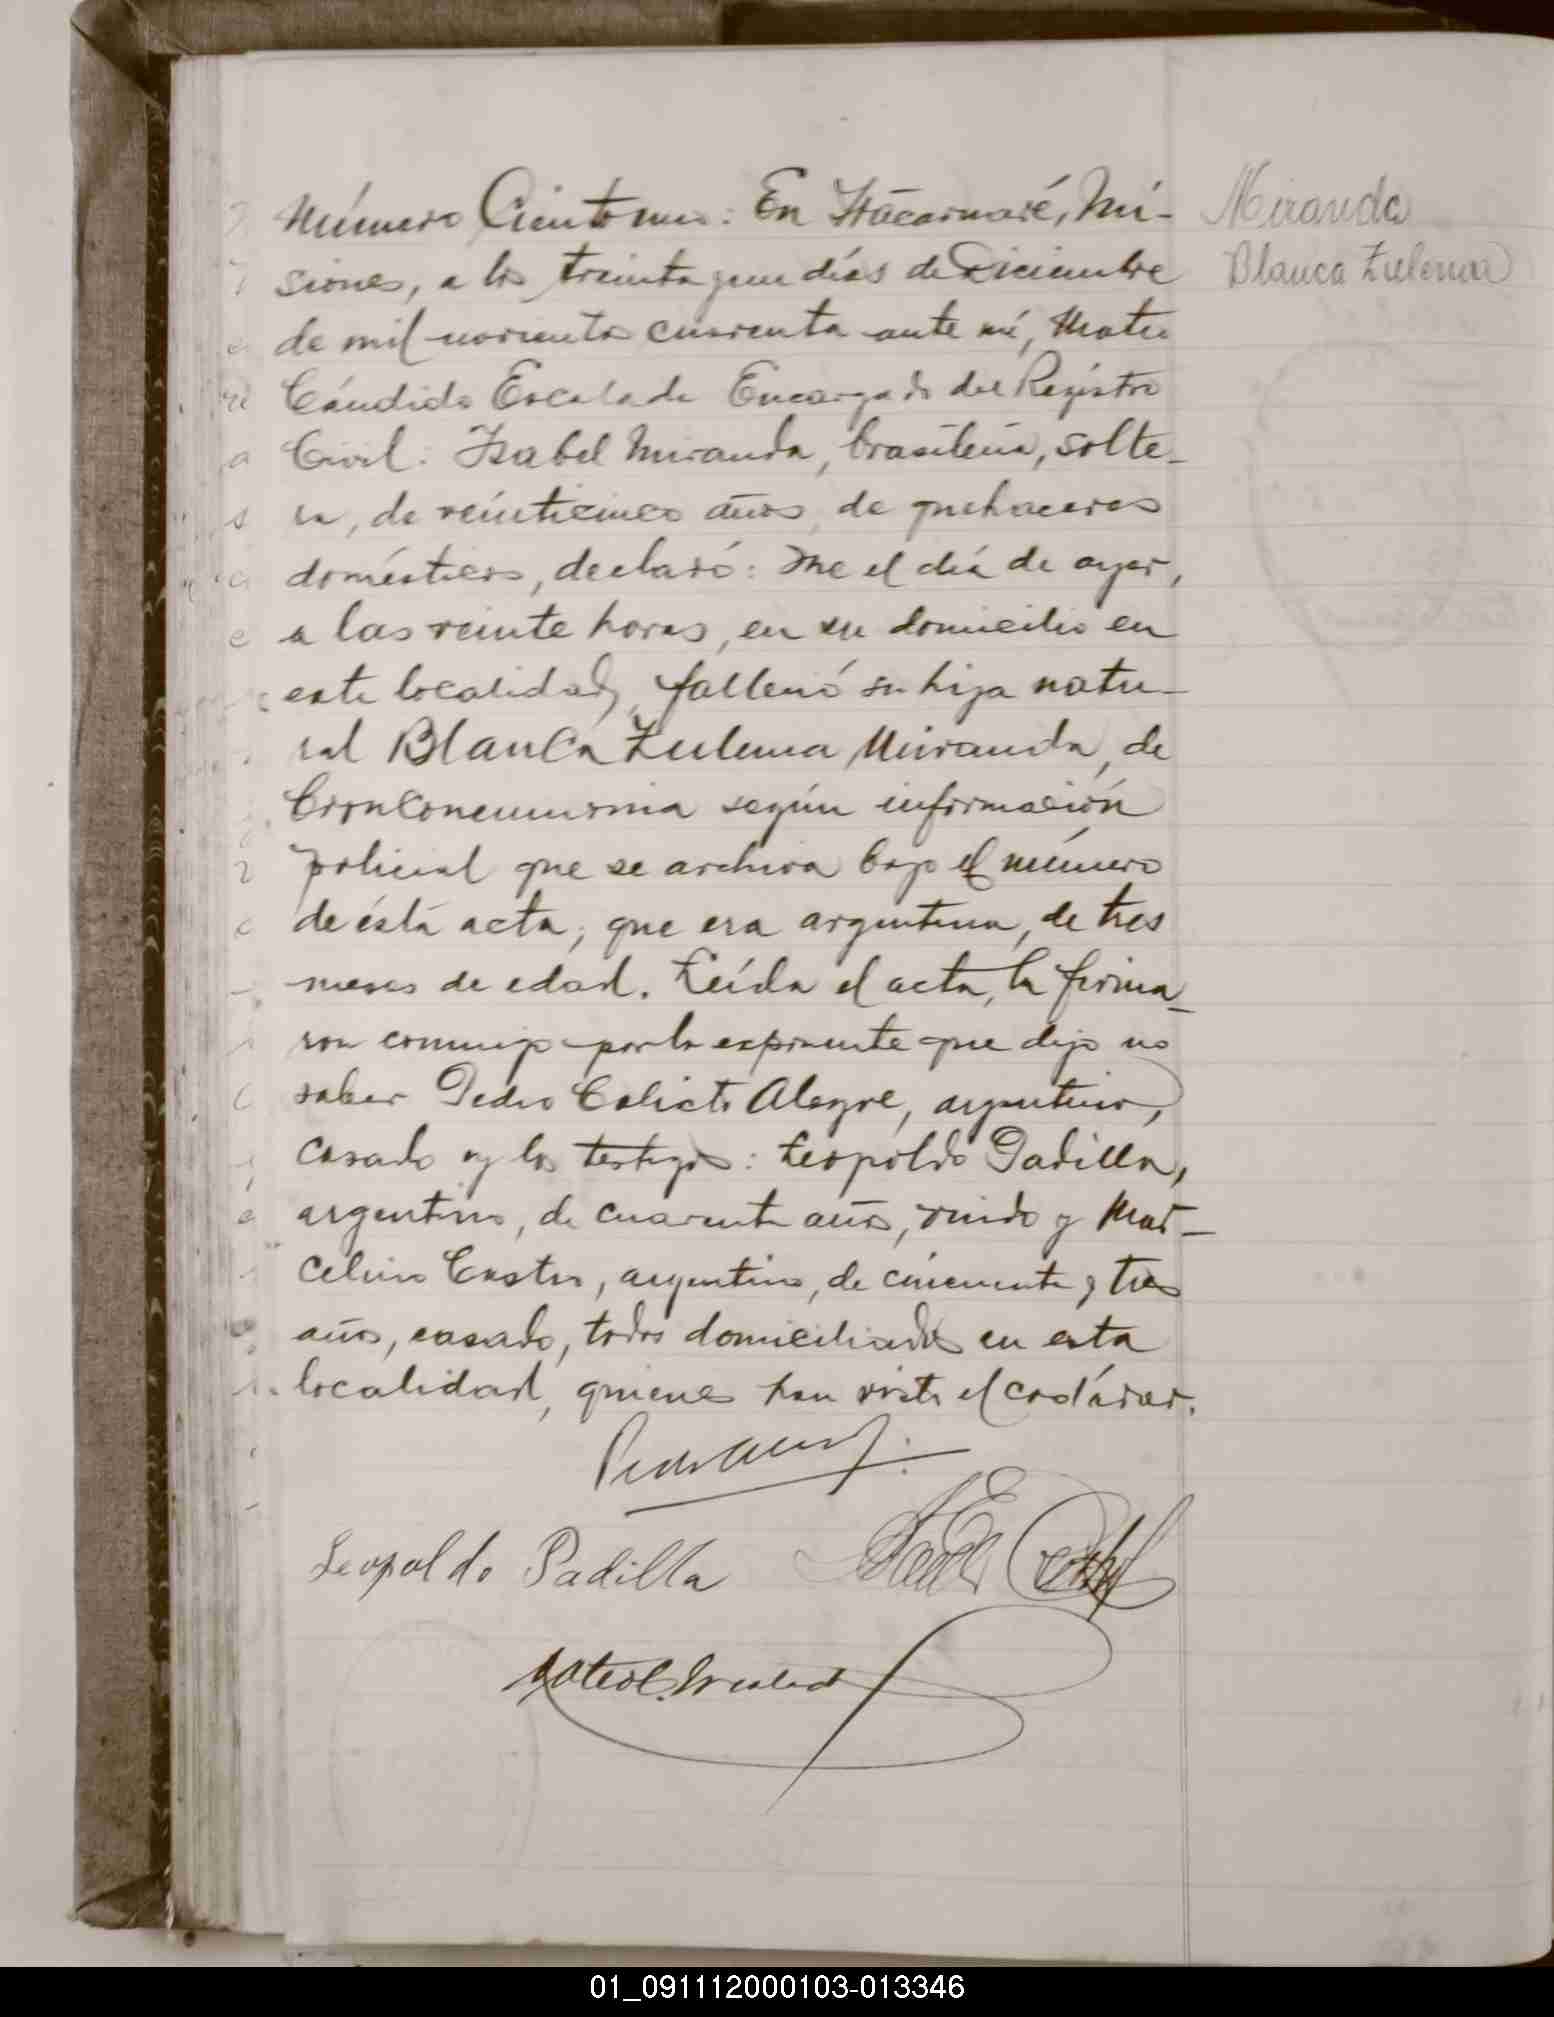 Número Ciento uno: En Itacaruaré, Mi-
siones, a los treinta y un días de Diciembre
de mil novecientos cuarenta ante mí, Mateo
Cándido Escalada Encargado del Registro
Civil: Isabel Miranda, brasileña, solte-
ra, de veinticinco años, de quehaceres
domésticos, declaró: Que el día de ayer,
a las veinte horas, en su domicilio en
esta localidad, falleció su hija natu-
ral Blanca Zulema Miranda, de
Bronconeumonia según información
policial que se archiva bajo el número
de ésta acta; que era argentina, de tres
meses de edad. Leída el acta, la firma-
ron conmigo por la exponente que dijo no
saber Pedro Calicto Alegre, argentino,
casado y los testigos: Leopoldo Padilla,
argentino, de cuarenta años, viudo y Mar-
celino Castro, argentino, de cincuenta y tres
años, casado, todos domiciliados en esta
localidad, quienes han visto el cadáver.
Leopoldo Padilla
Mateo C. Escalada
Miranda
Blanca Zulema
01_091112000103-013346